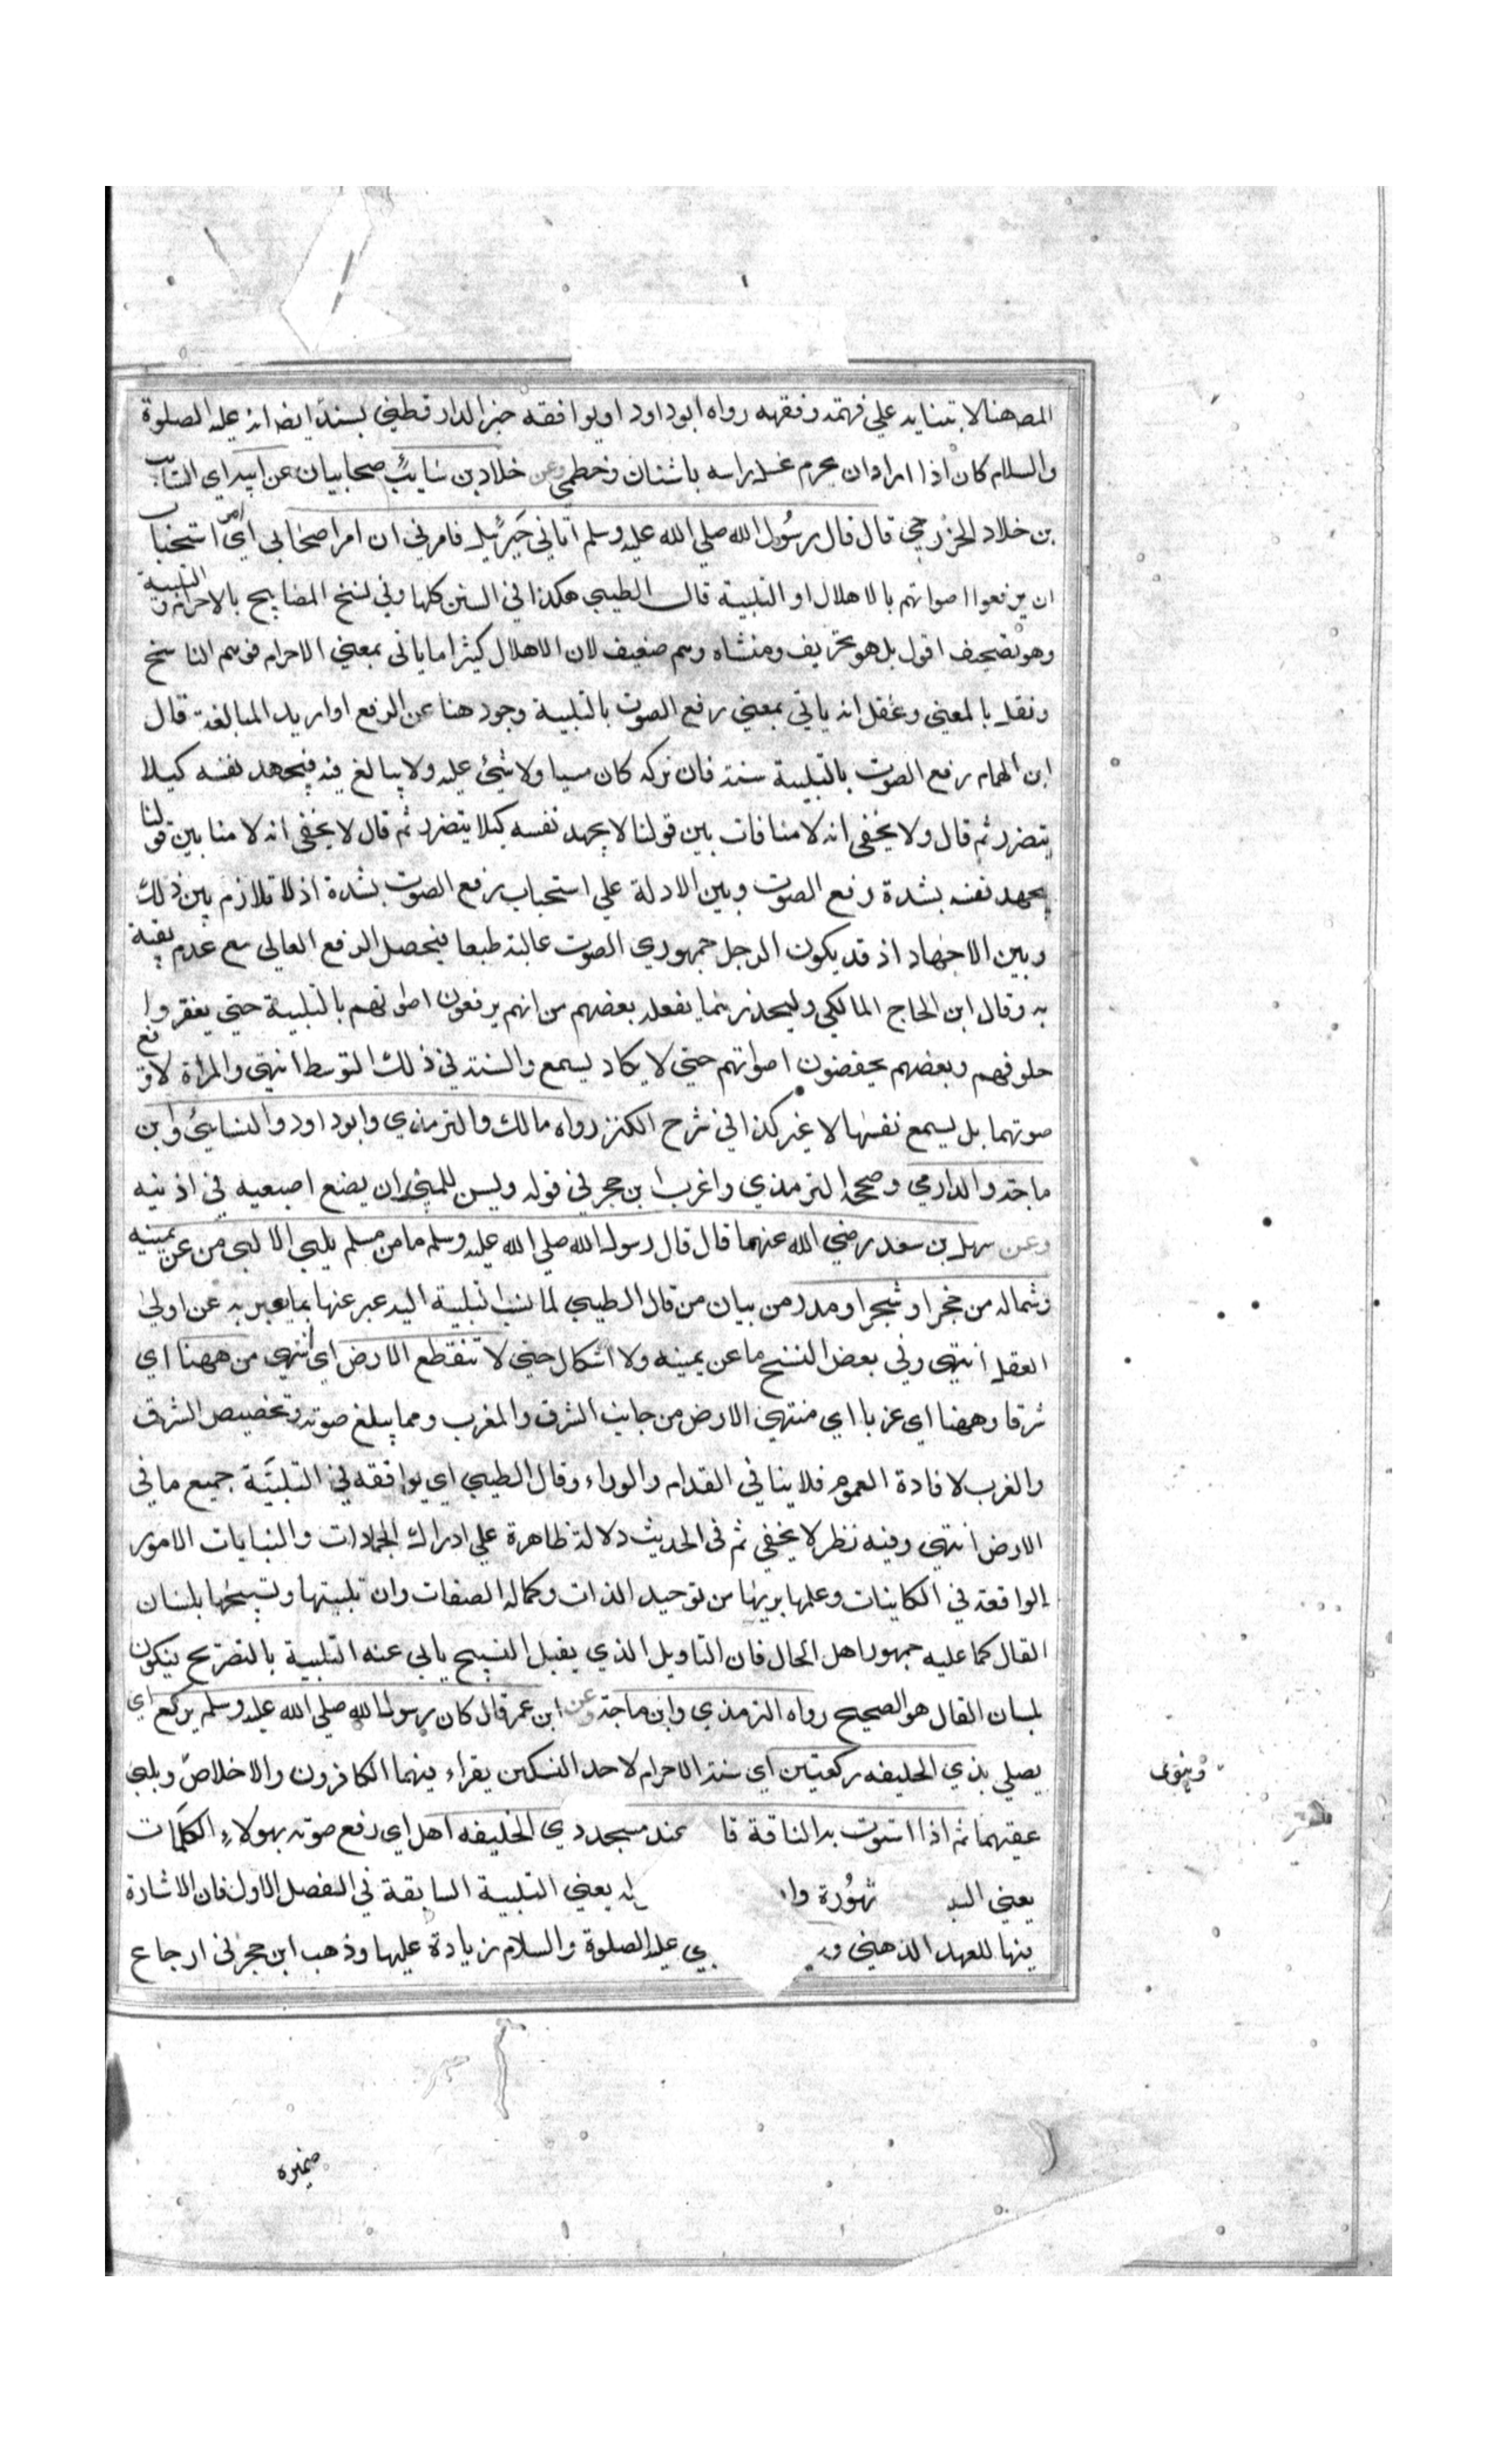 المص هنا لا تبنا يد علي فهمته وفقهه رواه ابو داود او يوافقه خبر الدار قطني بسند ايضا انه عليه الصلوة
والسلام كان اذا اراد ان يحرم غسل راسه باشنان وخطمي وعن خلاد بن سايب صحابيان عن ابيه اي السايب
بن خلاد الخزرجي قال قال رسول الله صلي الله عليه وسلم اتاني جبرئيل فامرني ان امر اصحابي اي امر استحباب
ان يرفعوا اصواتهم بالاهلال او التلبية قال الطيبي هكذا في السنن كلها وفي نسخ المصابيح بالاحرام و التلبية
وهو تصحيف اقول بل هو تحريف ومنشاه وهم ضعيف لان الاهلال كثيرا ما ياتي بمعني الاحرام فوهم الناسخ
ونقله بالمعني وغفل انه ياتي بمعني رفع الصوت بالتلبية وجود هنا عن الرفع او اريد المبالغة قال
ابن الهمام رفع الصوت بالتلبية سنة فان تركه كان مسيا ولا شئ عليه ولا يبالغ فيه فيجهد نفسه كيلا
يتضرر ثم قال ولا يخفي انه لا منافات بين قولنا لا يجهد نفسه كيلا يتضرر ثم قال لا يخفي انه لا منا بين قولنا
يجهد نفسه بشدة رفع الصوت وبين الادلة علي استحباب رفع الصوت بشدة اذ لا تلازم بين ذلك
وبين الاجهاد اذ قد يكون الرجل جمهوري الصوت عاليه طبعا فيحصل الرفع العالي مع عدم تعبه
به وقال ابن الحاج المالكي وليحذر مما يفعله بعضهم من انهم يرفعون اصواتهم بالتلبية حتي يعقروا
حلوقهم وبعضهم يخفضون اصواتهم حتي لا يكاد يسمع والسنة في ذلك التوسط انتهي والمراة لا ترفع
صوتها بل يسمع نفسها لا غير كذا في شرح الكنز رواه مالك والترمذي وابو داود والنسايئ وابن
ماجة والدارمي وصححه الترمذي واغرب ابن حجر في قوله وليس للملبي ان يضع اصبعيه في اذنيه
وعن سهل بن سعد رضي الله عنهما قال قال رسول الله صلي الله عليه وسلم ما من مسلم يلبي الا لبي من عن يمينه
وشماله من حجر او شجر او مدر من بيان من قال الطيبي لما نسب التلبية اليه عبر عنها بما يعبر به عن اولي
العقل انتهي وفي بعض النسخ ما عن يمينه ولا اشكال حتي لا تنقطع الارض اي انتهي من ههنا اي
شرقا وههنا اي غربا اي منتهي الارض من جانب الشرق والمغرب ومما يبلغ صوته وتخصيص الشرق
والغرب لافادة العموم فلا ينافي القدام والوراء وقال الطيبي اي يوافقه في التلبية جميع ما في
الارض انتهي وفيه نظر لا يخفي ثم في الحديث دلالة ظاهرة علي ادراك الجمادات والنباتات الامور
الواقعة في الكاينات وعلمها بربها من توحيد الذات وكمال الصفات وان تلبيتها وتسبيحها بلسان
القال كما عليه جمهور اهل الحال فان التاويل الذي يقبل التسبيح يابي عنه التلبية بالتصريح يتكون
بلسان القال هو الصحيح رواه الترمذي وابن ماجة وعن ابن عمر قال كان رسول الله صلي الله عليه وسلم يركع اي
يصلي بذي الحليفه ركعتين اي سنة الاحرام لاحد النسكين يقراء فيهما الكافرون والاخلاص ويلبي
وينوي
عقبهما ثم اذا استوت به الناقة قا عند مسجد ذي الحليفه اهل اي رفع صوته بهولاء الكلمات
يعني البد شهورة وا يعني التلبية السابقة في الفصل الاول فان الاشارة
فيها للعهد الذهني و بي عليه الصلوة والسلام زيادة عليها وذهب ابن حجر في ارجاع
ضميره